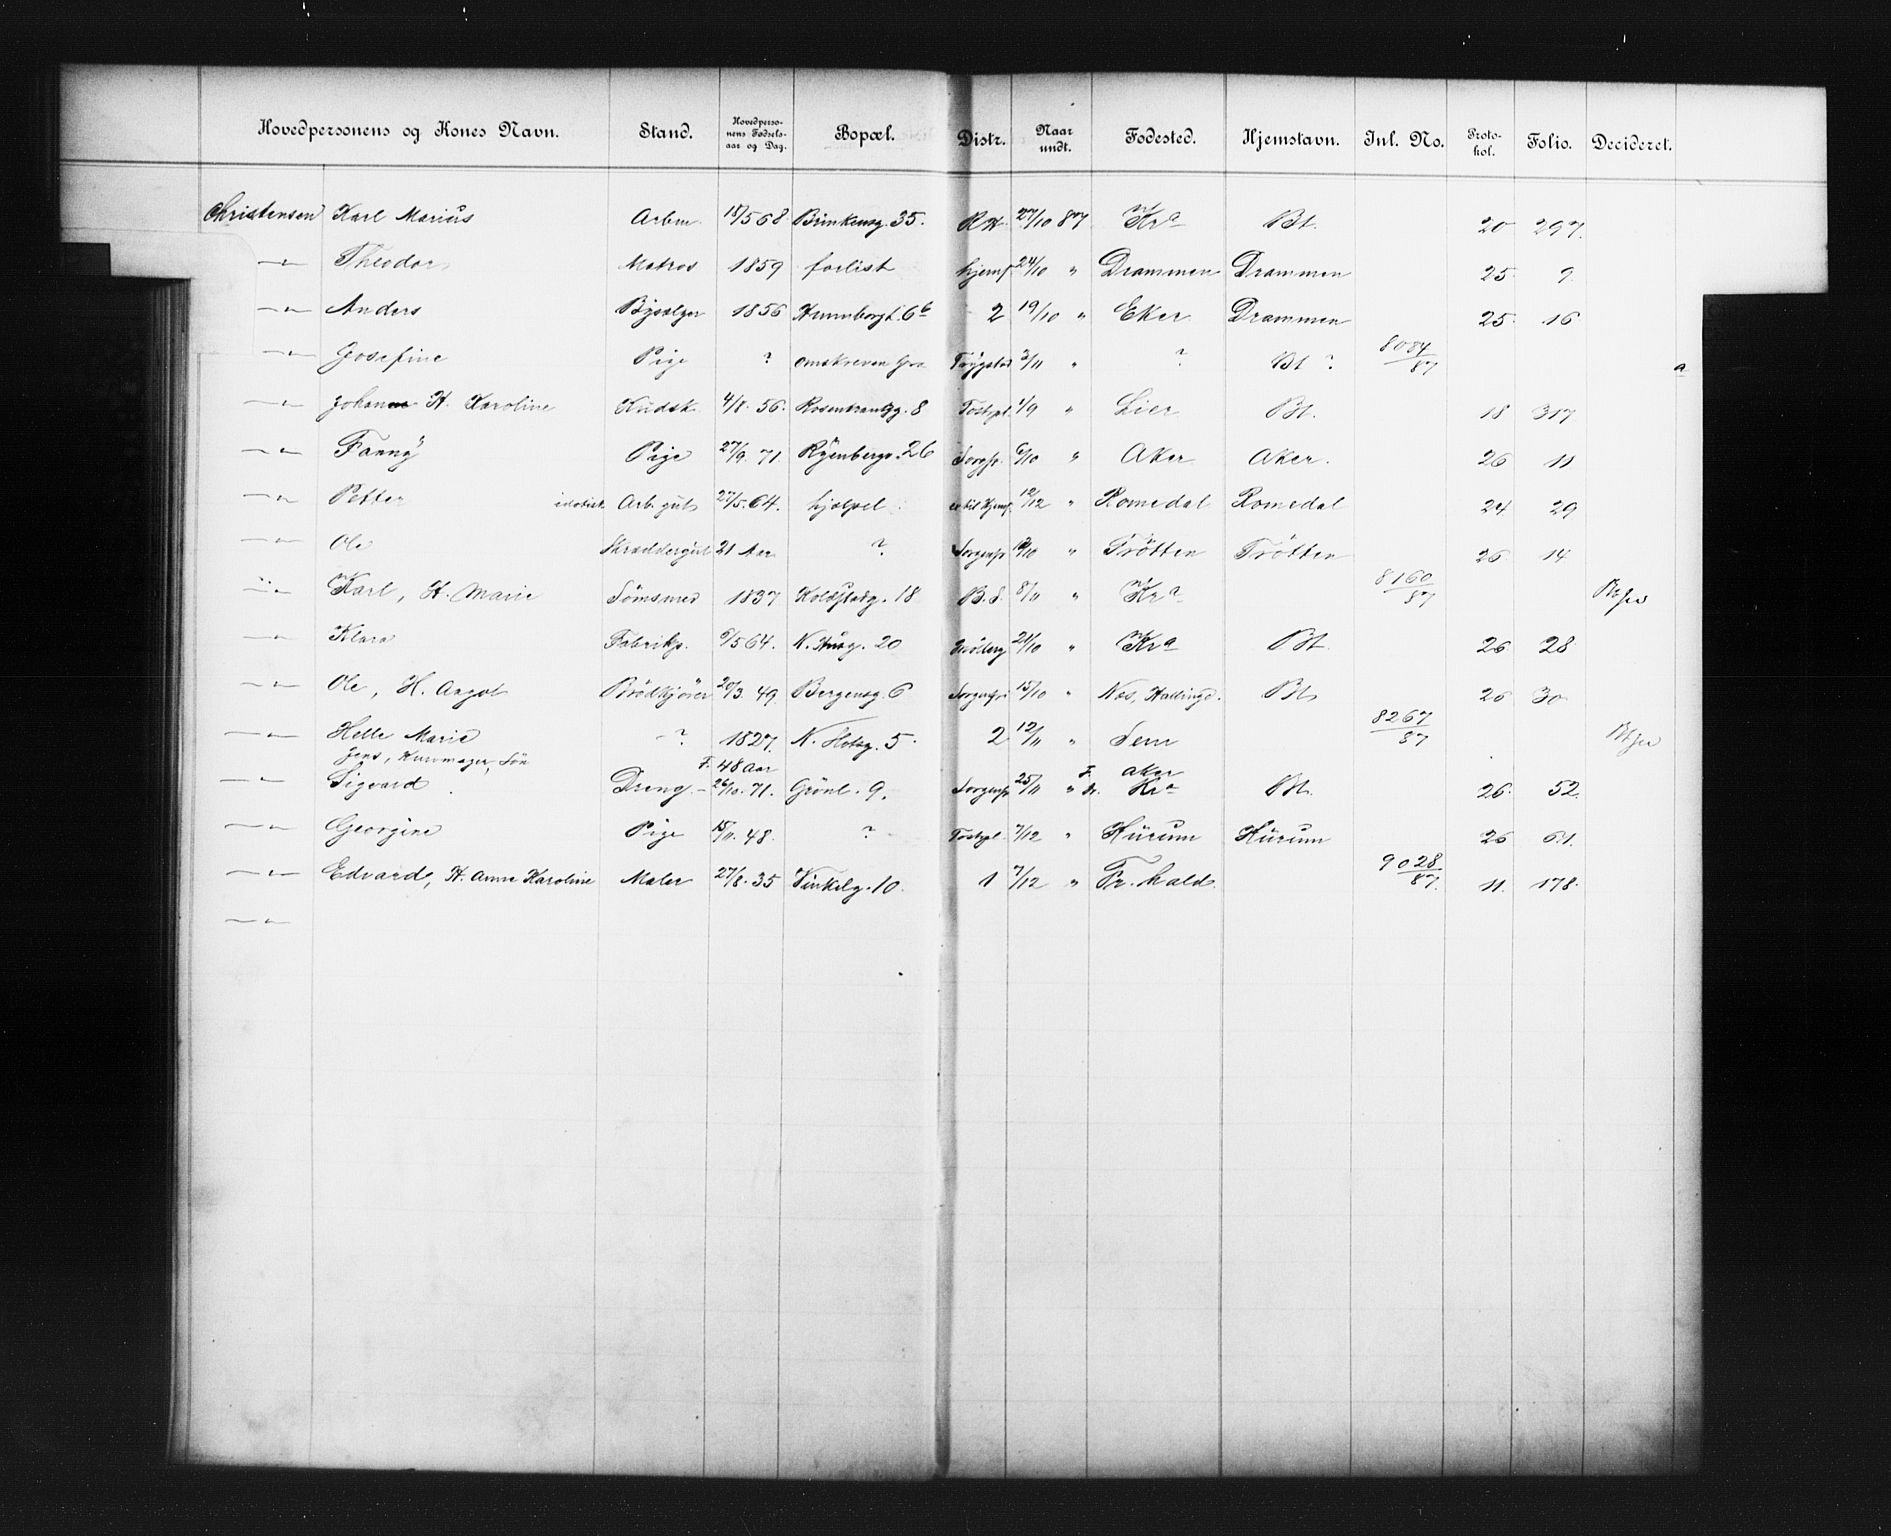 Hovedpersonens og Kones Navn. Stand. Hovedpersonens Fødselsaar og Dag. Bopæl. Distr. Naar undt. Fødested. Hjemstavn. Jnl. No. Protokol. Folio. Decideret.
Christensen Karl Marius Arbm. 15/5 68 Brinkensg. 35. 27/10 87 Kra Bt. 20 297.
—"— Theodor Matros 1859 forlist hjemf. 24/10 " Drammen Drammen 25. 9.
—"— Anders 1856 2 19/10 " Eker Drammen 25. 16
—"— Josefine Pige ? omskreven Trygstad 3/11 " ? Bt ? 8084/87 a
—"— Johan H. Karoline Kudsk 4/8. 56. Rosenkrantzg. 8 Tostpl. 1/9 " Lier Bt. 18 317
—"— Fanny Pige 27/9. 71. Ryenbergv. 26 Sorgfr. 6/10 " Aker Aker. 26 11
—"— Petter idiotisk Arb. gut 27/5. 64. hjælpel 12/12 " Romedal Romedal 24 29
—"— Ole Skræddergut 21 Aar ? Sorgenfr " Trötten Trötten 26 14
—"— Karl, H. Marie 1837 Koldstadg. 18 B. S. 8/11 " Kra 8160/87
—"— Klara Fabrikp. 6/5 64. N. 20 21/10 " Kra Bt 26 28
—"— Ole, H. Aagot Brödkjörer 20/3. 49. Bergensg. 6 Sorgenfri 15/10 " Nes, Hallingd. Bt. 26 30
—"— Helle Marie ? 1827. N. 5. 2 12/11 " Sem 8267/87
Jens, Kurvmager, Sön F. 48 Aar F. Aker
—"— Sigvard Dreng – 26/10. 71. Grönl. 9. Sorgenfr 25/11 " Kra Bt. 26. 52.
—"— Georgine Pige 15/11. 48. ? Tostpl. 7/12 " Hurum Hurum 26 61.
—"— Edvard, H. Anne Karoline Maler 27/8. 35 Vinkelg. 10. 1 7/12 " Fr.hald 9028/87. 11. 178.
—"—